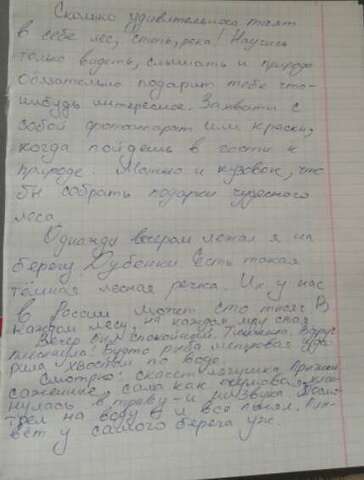 Сколько удивительного таят
в себе лес, степь, река! Научись
только видеть, слышать и природа
обязательно подарит тебе что-
нибудь интересное. Захвати с
собой фотоаппарат или краски,
когда пойдёшь в гости к
природе. Можно и кузовок, что
бы собрать подарки чудесного
леса.
Однажды вечером лежал я на
берегу Дубенки Есть такая
тёмная лесная речка. Их у нас
в России может сто тысяч. В
каждом лесу, на каждом
Вечер был спокойный. Тишина. Вдруг
плеснуло! Будто щука метровая уда-
рила хвостом по воде.
Смотрю: скачет лягушка. Прыжки
саженные, сама как
нулась в траву - и ни звука. Посмо-
трел на воду и всё понял. Плы-
вёт у самого берега уж.